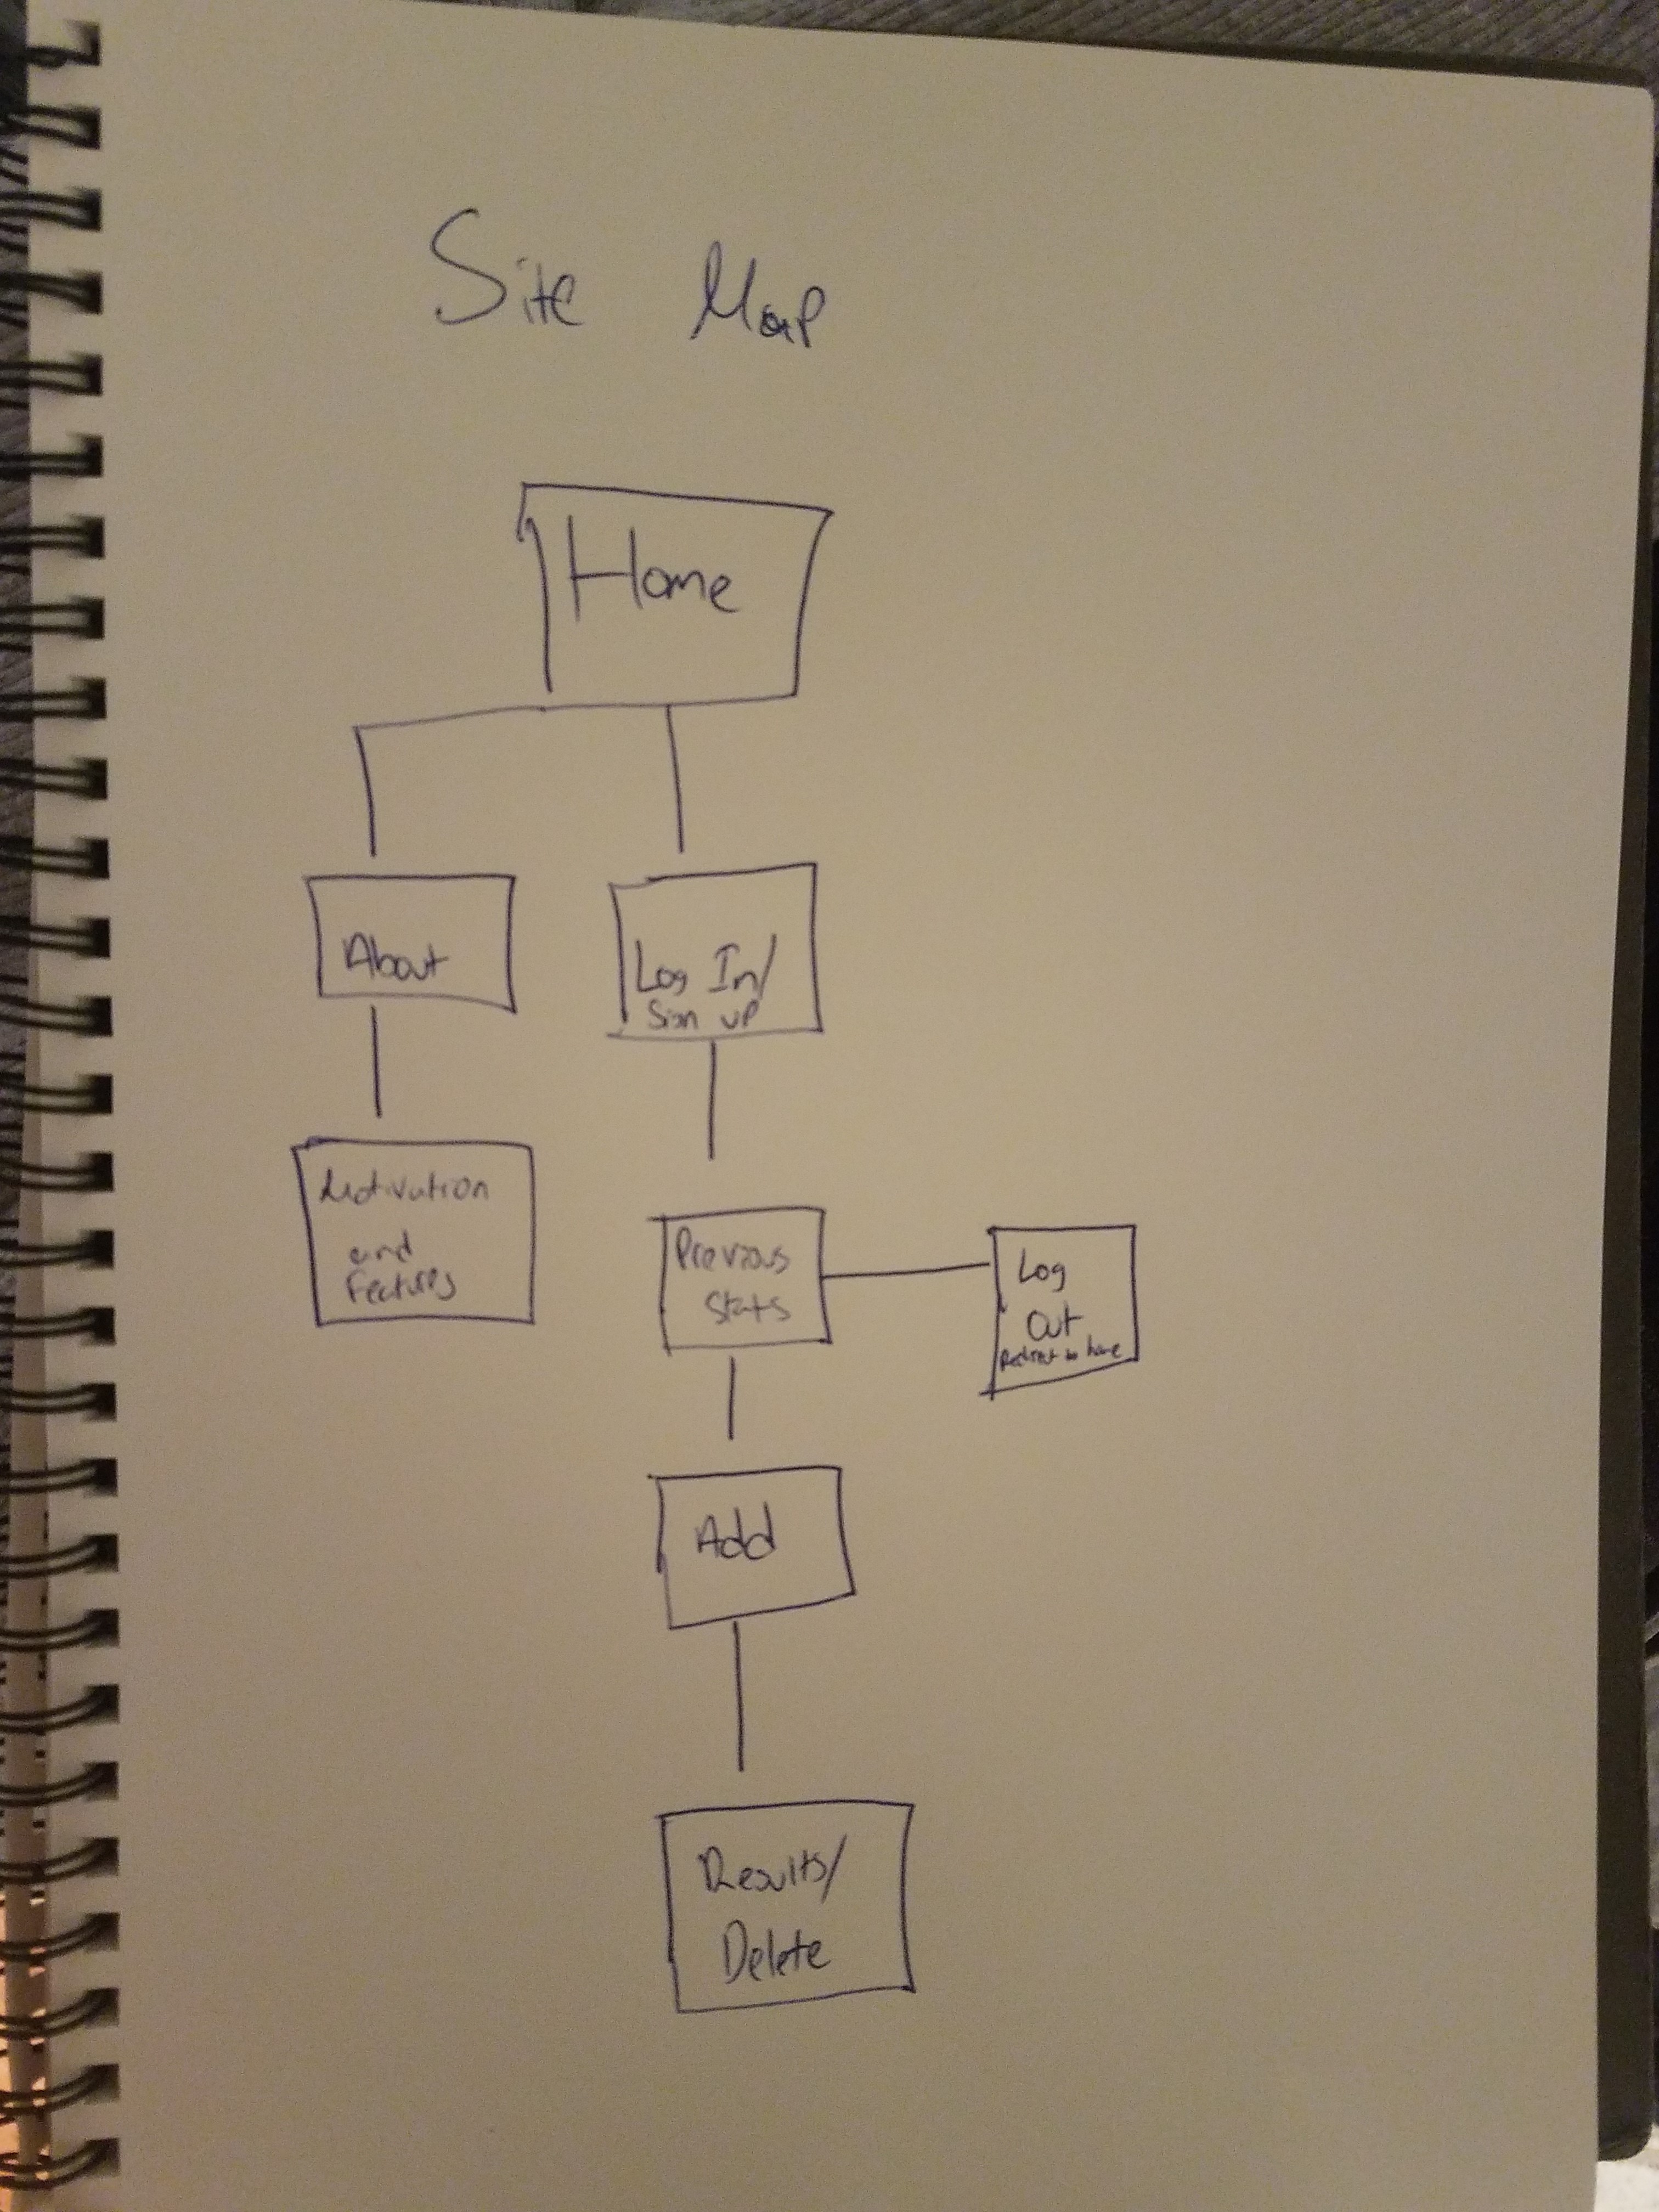 Site Map
Home
About
Log In/
Sign up
Motivation
and
Features
Previous
Stats
Log
Out
Redirect to home
Add
Results/
Delete